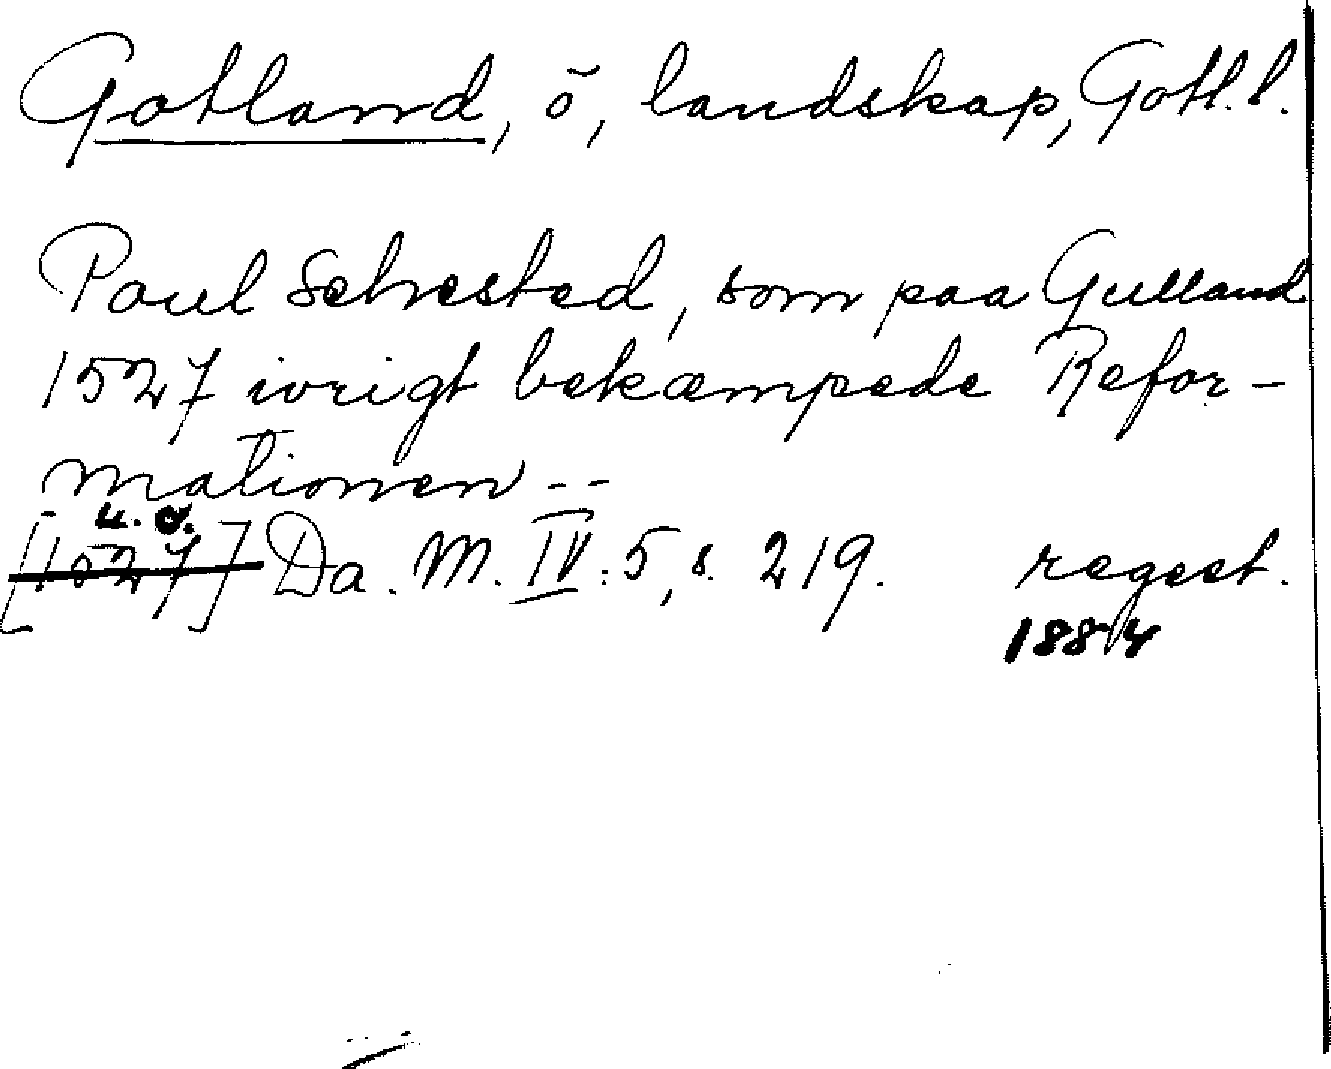 Gotland, ö, landskap, Gotl. l.
Poul Sehested, som paa Gulland
1527 ivrigt bekæmpede Refor-
mationen --
u. å.
[1527] Da. M. IV: 5, s. 219. regest.
1884